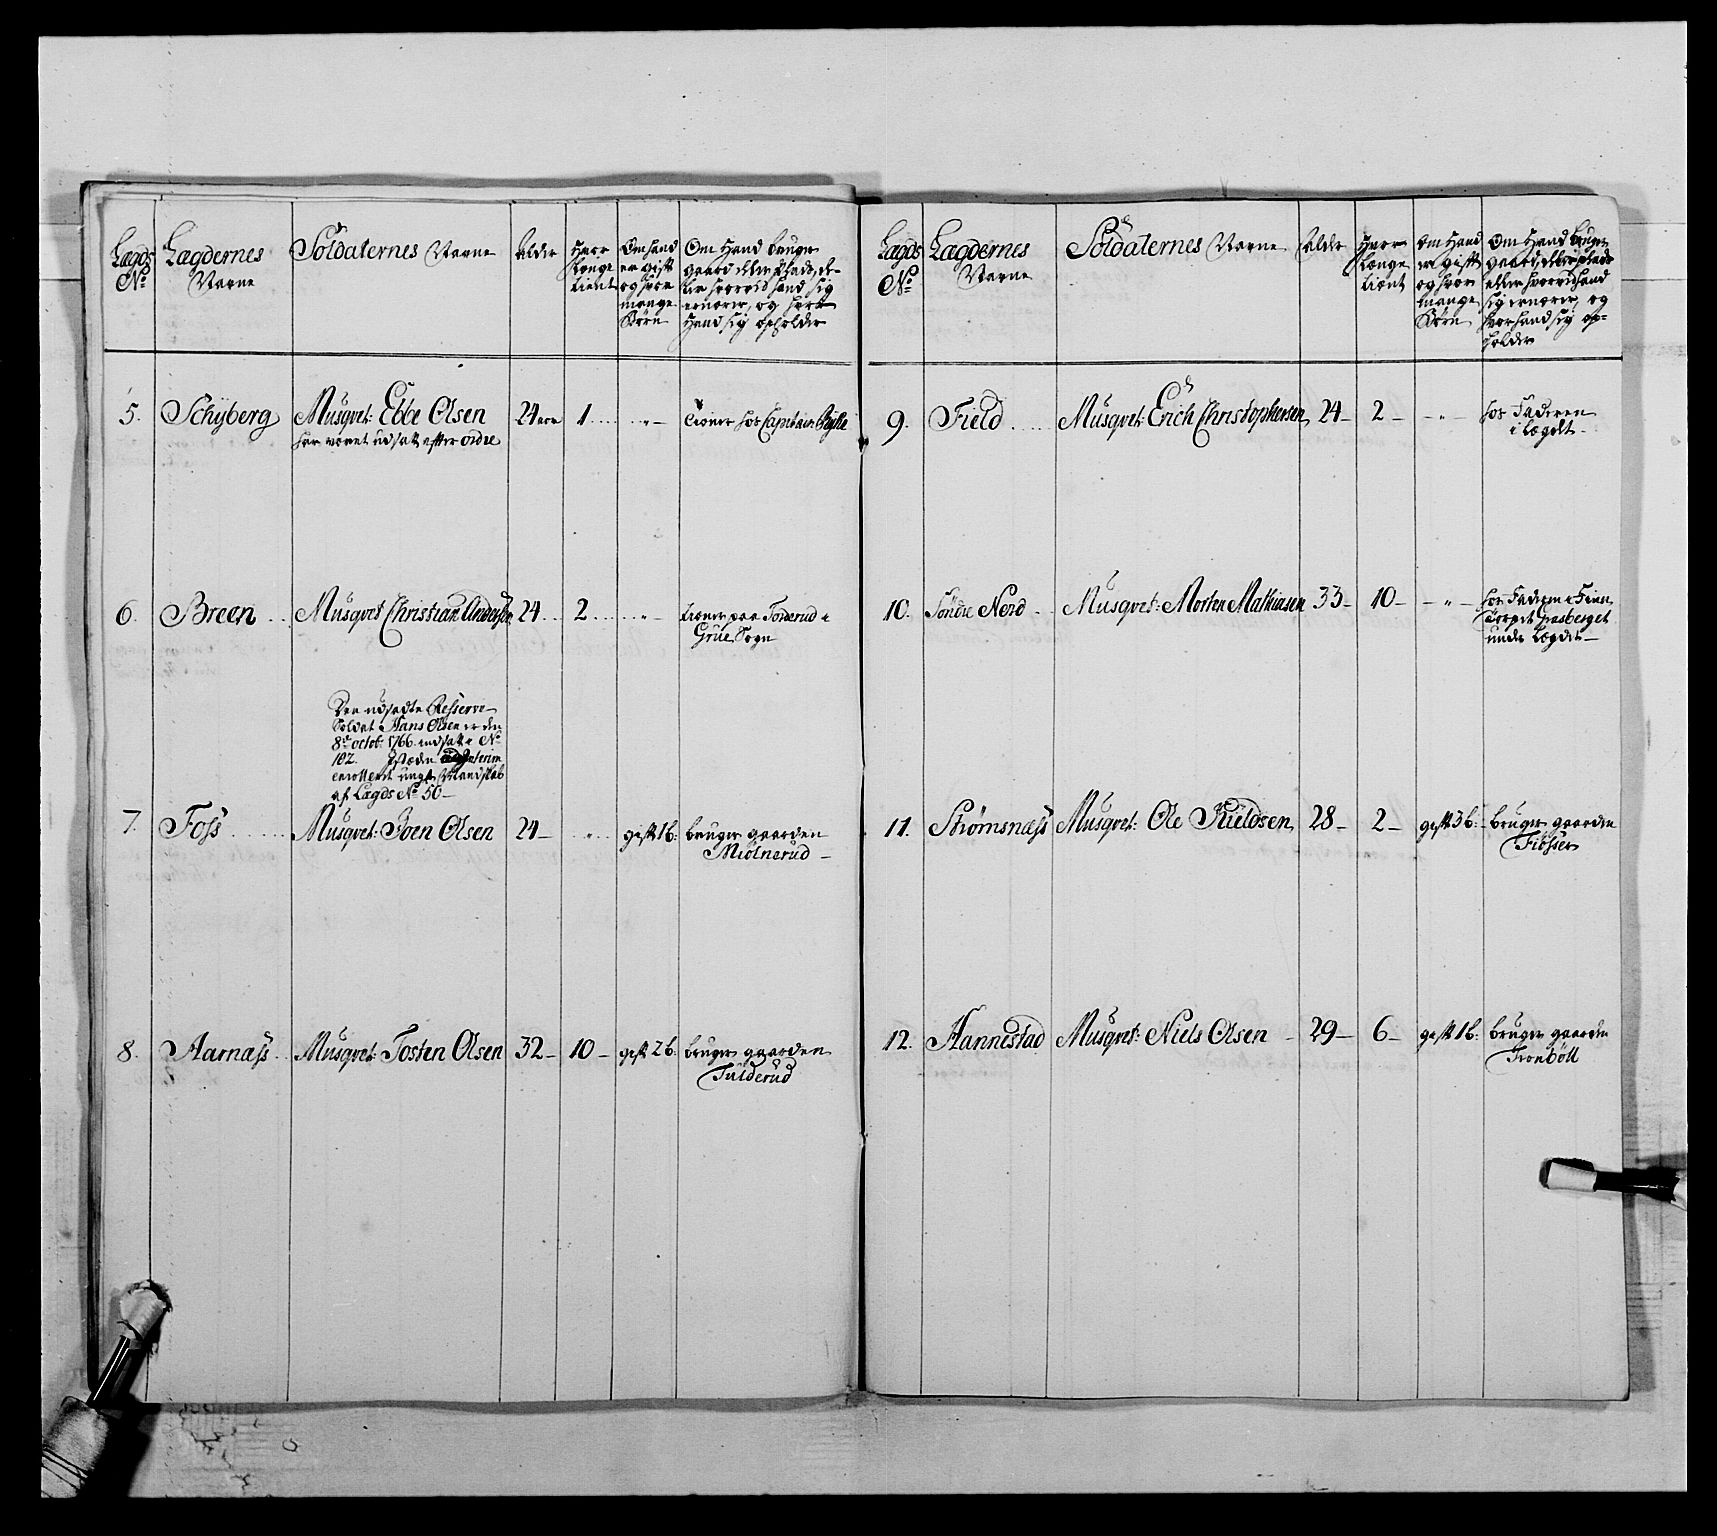 Lægds No
Lægdernes Navne
Soldaternes Navne
Alder
Har Længe tient
Om hand er gift og hvor mange Børn
Om Hand bruger gaard eller Plads, eller hvorved hand sig ernærer, og hvor Hand sig opholder
5. Schÿberg Musqvet: Ebbe Olsen 24 1 „ tiener hos Captain
har været udsatt efter ordre
6. Breen Musqvet Christian Andersen 24 2 „ tiener paa Torderud i
Grue Sogn
Den udsadte Resserve
Soldat Hans Olsen er den
8de octob: 1766 indsatt i No
102 I stæden interim
enrollerit ungt Mandskab
af Lægds No 50
7. Foss Musqvet: Joen Olsen 24 „ gift 1b: bruger gaarden
Miölnerud
8. Aarnæss Musqvet: Tosten Olsen 32 10 gift 2b: bruger gaarden
Tulderud
Lægds No
Lægdernes Navne
Soldaternes Navne
Alder
Har Længe tient
Om Hand er gift og hvor mange Børn
Om Hand bruger gaard, eller plads eller hvorved hand sig ernærer, og hvor hand sig opholder
9. Field Musqvet: Erich Christophersen 24 2 „ hos Faderen
i Lægdet
10. Söndre Nord Musqvet: Morten Mathiesen 33 10 „ hos Faderen i Finn
Torpet Grasberget
under Lægdet
11. Strømsnæss Musqvet: Ole Kieldsen 28 2 gift 3b: bruger gaarden
Fiösser
12. Hannestad Musqvet: Niels Olsen 29 6 gift 1b: bruger gaarden
Tronböll